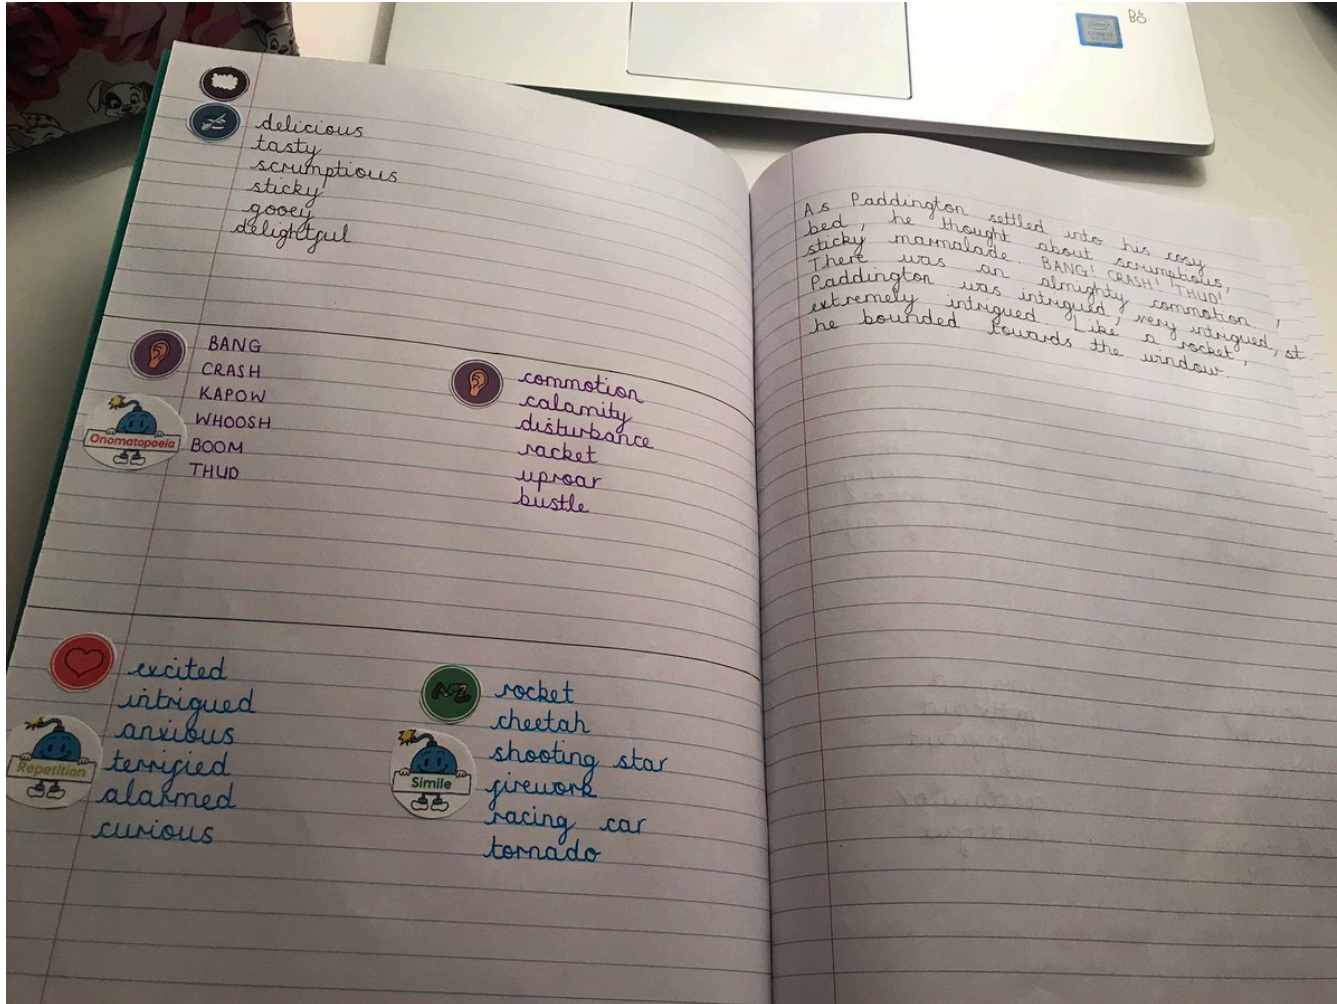 delicious
tasty
scrumptious
sticky
gooey
delightful
BANG
CRASH
KAPOW
WHOOSH
BOOM
THUD
Onomatopoeia
commotion
calamity
disturbance
racket
uproar
bustle
excited
intrigued
anxious
terrified
alarmed
curious
Repetition
rocket
cheetah
shooting star
firework
racing car
tornado
Simile
As Paddington settled into his cosy
bed, he thought about scrumptious,
sticky marmalade. BANG! CRASH! THUD!
There was an almighty commotion.
Paddington was intrigued, very intrigued,
extremely intrigued. Like a rocket,
he bounded towards the window.